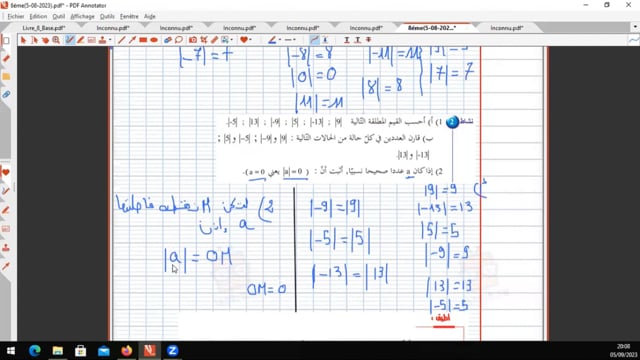 8éme(5-08-2023).pdf* - PDF Annotator
Livre_8_Base.pdf*
Inconnu.pdf*
Inconnu.pdf*
Inconnu.pdf*
8éme(5-08-202...
Inconnu.pdf*
Inconnu.pdf*
Inconnu.pdf*
|-7| = 7
|-8| = 8
|-11| = 11
|0| = 0
|7| = 7
|8| = 8
|11| = 11
نشاط 2 1) أ) أحسب القيم المطلقة التالية |9| ; |-13| ; |5| ; |-9| ; |13| ; |-5|.
ب) قارن العددين في كلّ حالة من الحالات التالية: |9| و |-9| ; |-5| و |5| ;
|-13| و |13|.
2) إذا كان a عددا صحيحا نسبيّا، أثبت أنّ : (|a| = 0 يعني a = 0).
|9| = 9
|-13| = 13
|5| = 5
|-9| = 9
|13| = 13
|-5| = 5
|-9| = |9|
|-5| = |5|
|-13| = |13|
2) لتكن M نقطة فاصلتها
a إذن
|a| = OM
OM = 0
أطبق :
20:08
05/09/2023